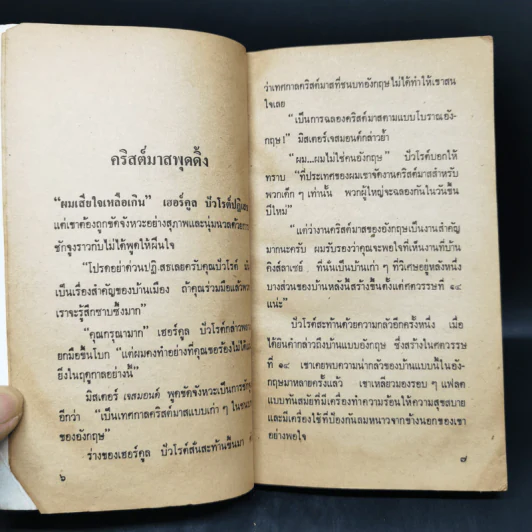 คริสต์มาสพุดดิ้ง
"ผมเสียใจเหลือเกิน" เฮอร์คูล ปัวโรต์ปฏิเสธ
แต่เขาต้องถูกขัดจังหวะอย่างสุภาพและนุ่มนวลด้วยการ
ชักจูงราวกับไม่ได้พูดให้ฝืนใจ
"โปรดอย่าด่วนปฏิเสธเลยครับคุณปัวโรต์
เป็นเรื่องสำคัญของบ้านเมือง ถ้าคุณร่วมมือแล้ว
เราจะรู้สึกซาบซึ้งมาก"
"คุณกรุณามาก" เฮอร์คูล ปัวโรต์กล่าวพลาง
ยกมือขึ้นโบก "แต่ผมคงทำอย่างที่คุณขอร้องไม่ได้
ยิ่งในฤดูกาลอย่างนี้"
มิสเตอร์ เจสมอนด์ พูดขัดจังหวะเป็นการ
อีกว่า "เป็นเทศกาลคริสต์มาสแบบเก่า ๆ ในชนบท
ของอังกฤษ"
ร่างของเฮอร์คูล ปัวโรต์สั่นสะท้านขึ้นมา
๖
ว่าเทศกาลคริสต์มาสที่ชนบทอังกฤษไม่ได้ทำให้เขาสน
ใจเลย
"เป็นการฉลองคริสต์มาสตามแบบโบราณอัง-
กฤษ!" มิสเตอร์เจสมอนด์กล่าวย้ำ
"ผม...ผมไม่ใช่คนอังกฤษ" ปัวโรต์บอกให้
ทราบ "ที่ประเทศของผมเขาจัดงานคริสต์มาสสำหรับ
พวกเด็ก ๆ เท่านั้น พวกผู้ใหญ่จะฉลองกันในวันขึ้น
ปีใหม่"
"แต่ว่างานคริสต์มาสของอังกฤษเป็นงานสำคัญ
มากนะครับ ผมรับรองว่าคุณจะพอใจที่เห็นงานที่บ้าน
คิงส์ลาเซย์ ที่นั่นเป็นบ้านเก่า ๆ ที่วิเศษอยู่หลังหนึ่ง
บางส่วนของบ้านหลังนี้สร้างขึ้นตั้งแต่ศตวรรษที่ ๑๔
แน่ะ"
ปัวโรต์สะท้านด้วยความกลัวอีกครั้งหนึ่ง เมื่อ
ได้ยินคำกล่าวถึงบ้านแบบอังกฤษ ซึ่งสร้างในศตวรรษ
ที่ ๑๔ เขาเคยพบความน่ากลัวของบ้านแบบนี้ในอัง-
กฤษมาหลายครั้งแล้ว เขาเหลียวมองรอบ ๆ แฟลต
แบบทันสมัยที่มีเครื่องทำความร้อนให้ความสุขสบาย
และมีเครื่องใช้ที่ป้องกันลมหนาวจากข้างนอกของเขา
อย่างพอใจ
๗